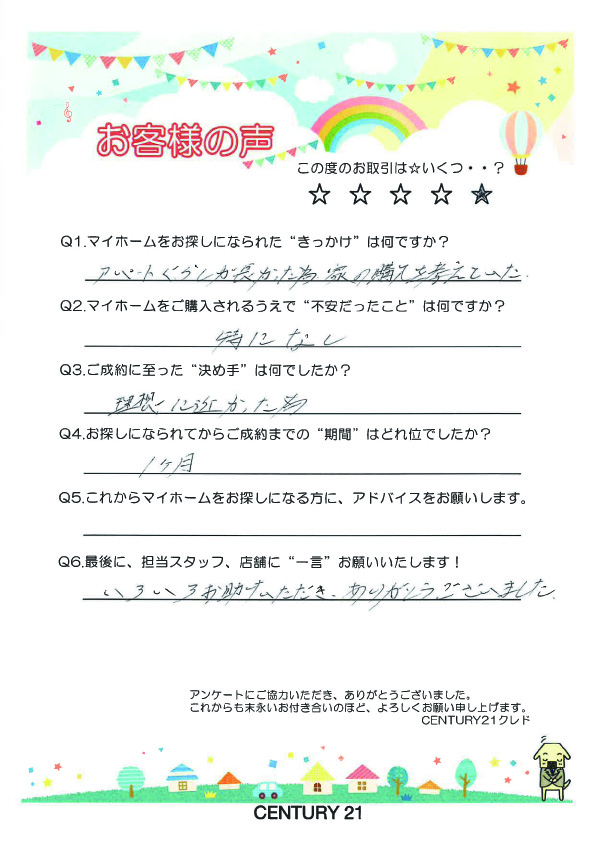 お客様の声
この度のお取引は☆いくつ・・?
☆ ☆ ☆ ☆ ★
Q1.マイホームをお探しになられた“きっかけ”は何ですか?
アパートぐらしが長かった為 家の購入を考えていた.
Q2.マイホームをご購入されるうえで“不安だったこと”は何ですか?
特になし
Q3.ご成約に至った“決め手”は何でしたか?
理想に近かった為
Q4.お探しになられてからご成約までの“期間”はどれ位でしたか?
1ヶ月
Q5.これからマイホームをお探しになる方に、アドバイスをお願いします。
Q6.最後に、担当スタッフ、店舗に“一言”お願いいたします!
いろいろお助けいただき、ありがとうございました.
アンケートにご協力いただき、ありがとうございました。
これからも末永いお付き合いのほど、よろしくお願い申し上げます。
CENTURY21クレド
CENTURY 21